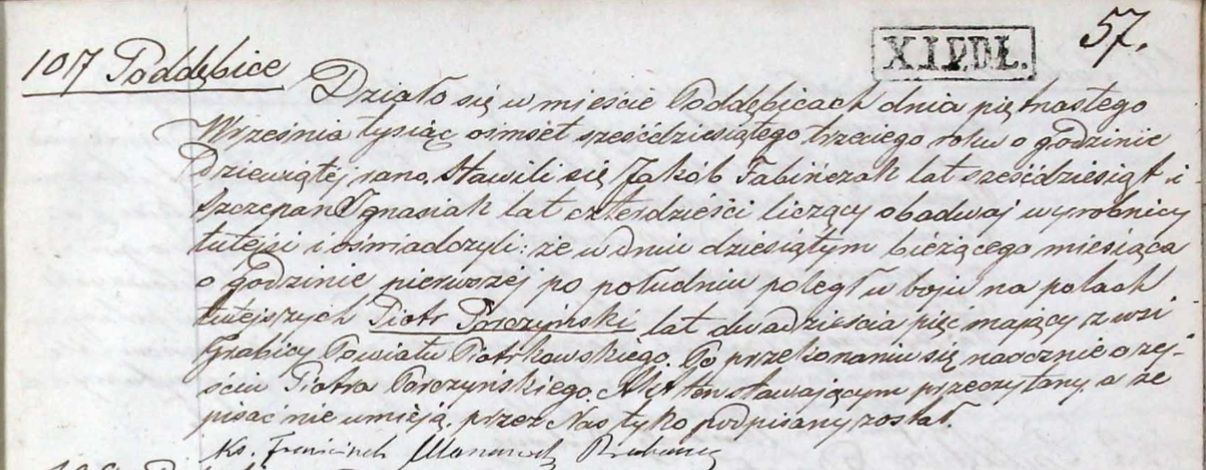 57.
X.I.P.D.Ł.
107 Poddębice
Działo się w mieście Poddębicach dnia piętnastego
Września tysiąc ośmset sześćdziesiątego trzeciego roku o godzinie
Dziewiątej rano. Stawili się Jakób Fabińczak lat sześćdziesiąt i
Szczepan Ignasiak lat czterdzieści liczący obadwaj wyrobnicy
tutejsi i oświadczyli: że w dniu dziesiątym bieżącego miesiąca
o godzinie pierwszej po południu poległ w boju na polach
tutejszych Piotr Porczyński lat dwadzieścia pięć mający z wsi
Grabicy Powiatu Piotrkowskiego. Po przekonaniu się naocznie o zej-
ściu Piotra Porczyńskiego. Akt ten stawającym przeczytany a że
pisać nie umieją. przez Nas tyko podpisany został.
Ks. Franciszek